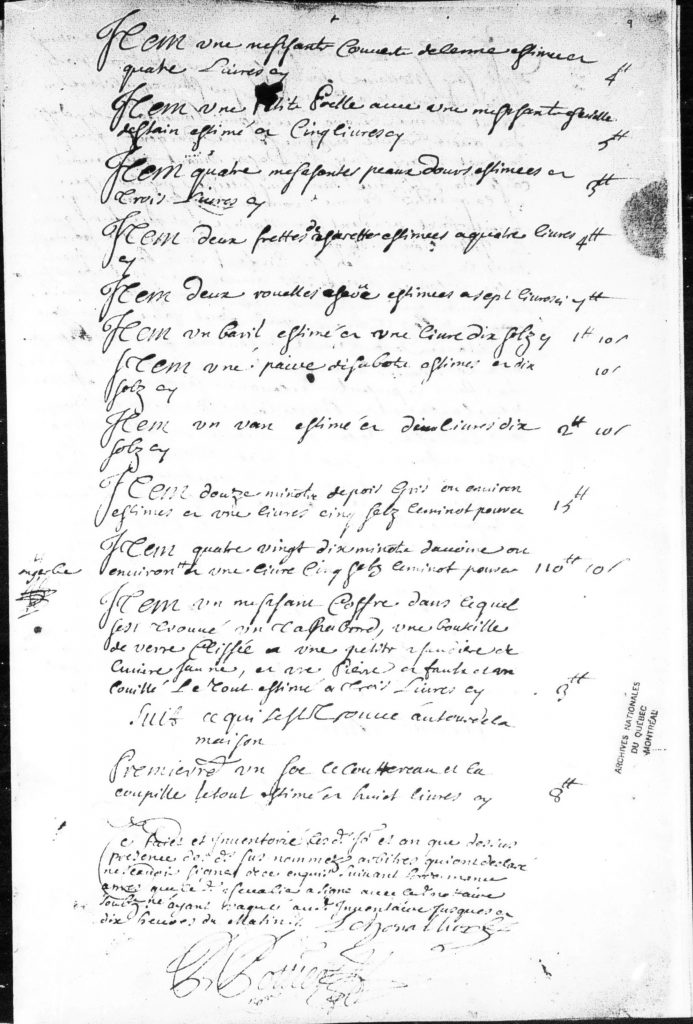 9
Item une meschante Couverte de lenne estimee a
quatre Livres cy 4tt
Item une petite Poelle avec une meschante
destain estimé a Cinq livres cy 5tt
Item quatre meschantes peaux dours estimees a
Trois Livres cy 3tt
Item deux frettes de estimees a quatre livres 4tt
cy
Item deux rouelles estimees a sept livres cy 7tt
Item un baril estimé a une livre dix solz cy 1tt 10s
Item une paire de sabots estimes a dix 10s
solz cy
Item un van estimé a deux livres dix 2tt 10s
solz cy
Item douze minots de pois Gris ou environ
estimes a une livres cinq solz le minot pour cy 15tt
Item quatre vingt dix minots davoine ou
en gerbe
environ a une livre Cinq solz le minot pour cy 110tt 10s
Item un meschant Coffre dans lequel
sest trouvé un une bouteille
de verre Clissée et une petite
Cuivre jaune, et une Pierre a faulx et un
Le tout estimé a Trois Livres cy 3tt
Suit ce qui sest Trouvé autour de la
maison
Premierement un soc le Couttereau et la
coupille le tout estimé a huict livres cy 8tt
Ce Faict et Inventorié les d. jour et an que dessus
presence des d. sus nommez arbitres qui ont declaré
ne scavoir signer de ce enquis suivant lordonnance
avec le d. notaire
ayant vaqué au d. Inventaire jusques a
dix heures du Matin
ARCHIVES NATIONALES
DU QUÉBEC
MONTRÉAL